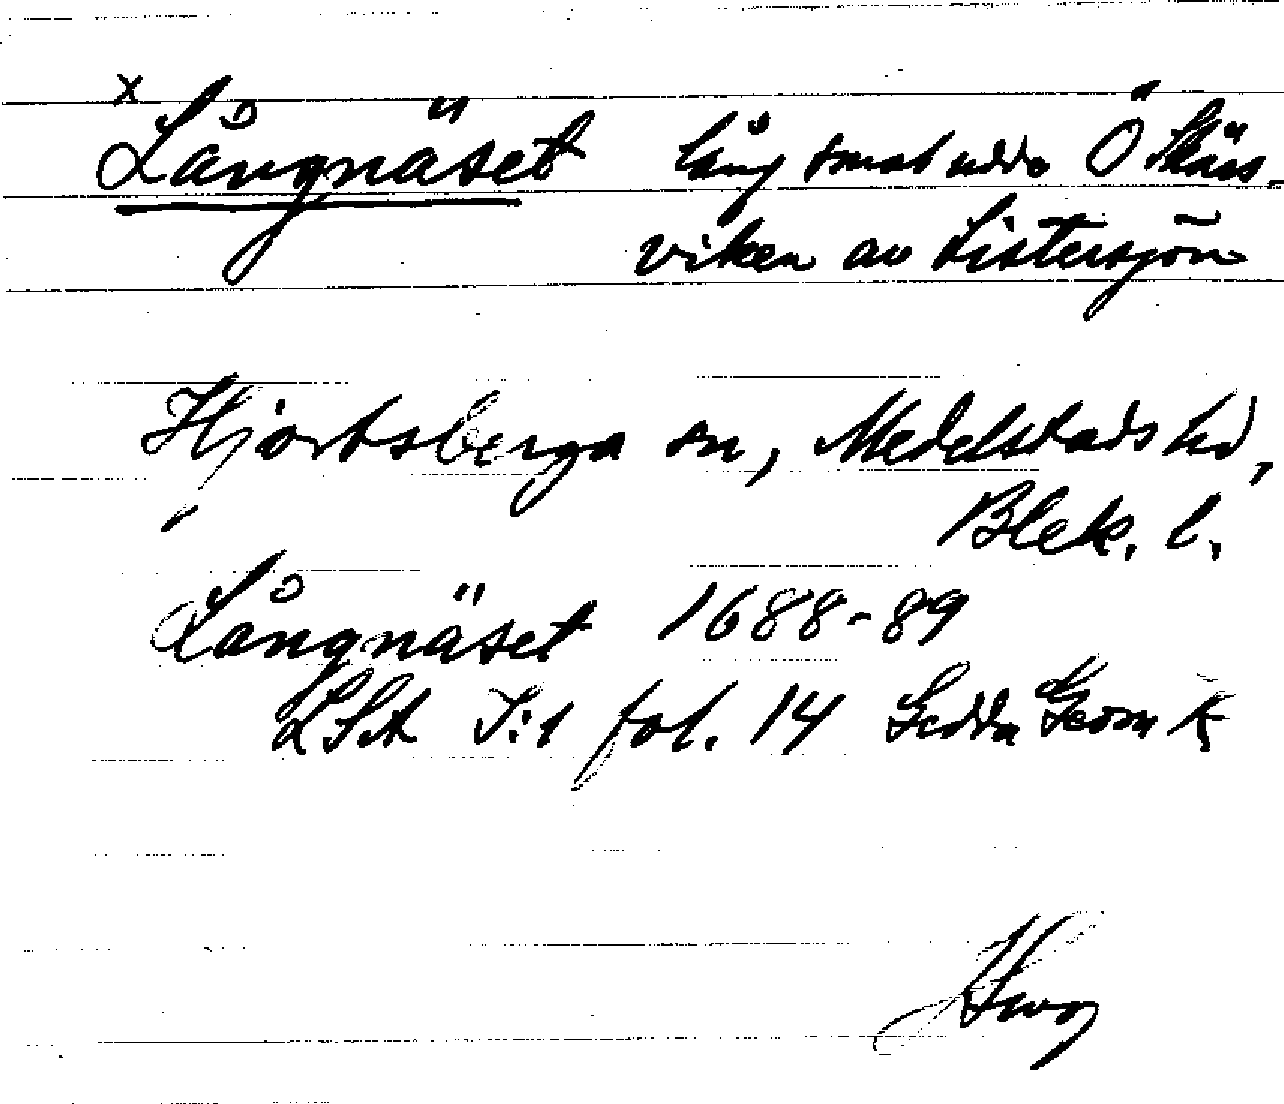 x Långnäset lång smal udde Ö
viken av Listersjön
Hjortsberga sn, Medelstads hd,
Blek. l.
Långnäset 1688-89
LSA I:1 fol. 14 Gedda Geom k